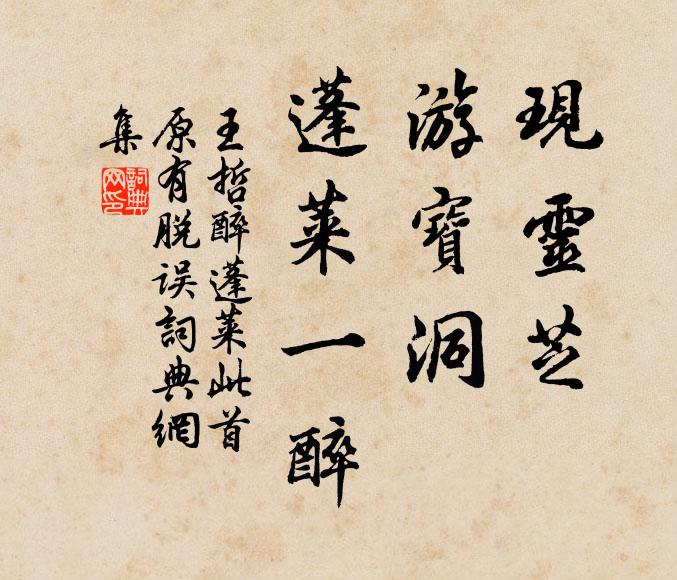 現靈芝
游寶洞
蓬萊一醉
王哲醉蓬萊此首
原有脫误詞典網
集
詞典
网印